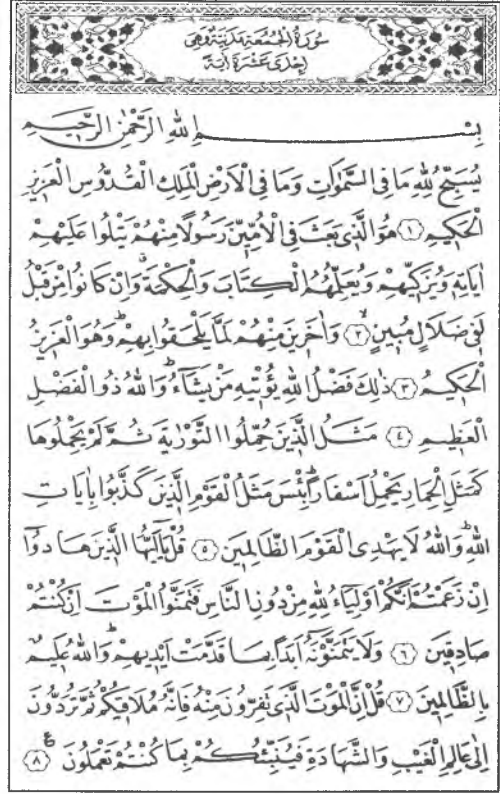 سُورَةُ الْجُمُعَةِ مَدَنِيَّةٌ وَهِيَ
اِحْدٰى عَشَرَةَ اٰيَةً
بِسْمِ اللهِ الرَّحْمٰنِ الرَّحِيمِ
يُسَبِّحُ لِلّٰهِ مَا فِى السَّمٰوَاتِ وَمَا فِى الْاَرْضِ الْمَلِكِ الْقُدُّوسِ الْعَزِيزِ
الْحَكِيمِ ﴿١﴾ هُوَ الَّذِى بَعَثَ فِى الْاُمِّيّنَ رَسُولًا مِنْهُمْ يَتْلُوا عَلَيْهِمْ
اٰيَاتِهِ وَيُزَكِّيهِمْ وَيُعَلِّمُهُمُ الْكِتَابَ وَالْحِكْمَةَ وَاِنْ كَانُوا مِنْ قَبْلُ
لَفِى ضَلَالٍ مُبِينٍ ﴿٢﴾ وَاٰخَرِينَ مِنْهُمْ لَمَّا يَلْحَقُوا بِهِمْ وَهُوَ الْعَزِيزُ
الْحَكِيمُ ﴿٣﴾ ذٰلِكَ فَضْلُ اللهِ يُؤْتِيهِ مَنْ يَشَاءُ وَاللهُ ذُو الْفَضْلِ
الْعَظِيمِ ﴿٤﴾ مَثَلُ الَّذِينَ حُمِّلُوا التَّوْرٰيةَ ثُمَّ لَمْ يَحْمِلُوهَا
كَمَثَلِ الْحِمَارِ يَحْمِلُ اَسْفَارًا بِئْسَ مَثَلُ الْقَوْمِ الَّذِينَ كَذَّبُوا بِاٰيَاتِ
اللهِ وَاللهُ لَا يَهْدِى الْقَوْمَ الظَّالِمِينَ ﴿٥﴾ قُلْ يَااَيُّهَا الَّذِينَ هَادُوا
اِنْ زَعَمْتُمْ اَنَّكُمْ اَوْلِيَاءُ لِلّٰهِ مِنْ دُونِ النَّاسِ فَتَمَنَّوُا الْمَوْتَ اِنْ كُنْتُمْ
صَادِقِينَ ﴿٦﴾ وَلَا يَتَمَنَّوْنَهُ اَبَدًا بِمَا قَدَّمَتْ اَيْدِيهِمْ وَاللهُ عَلِيمٌ
بِالظَّالِمِينَ ﴿٧﴾ قُلْ اِنَّ الْمَوْتَ الَّذِى تَفِرُّونَ مِنْهُ فَاِنَّهُ مُلَاقِيكُمْ ثُمَّ تُرَدُّونَ
اِلٰى عَالِمِ الْغَيْبِ وَالشَّهَادَةِ فَيُنَبِّئُكُمْ بِمَا كُنْتُمْ تَعْمَلُونَ ع ﴿٨﴾